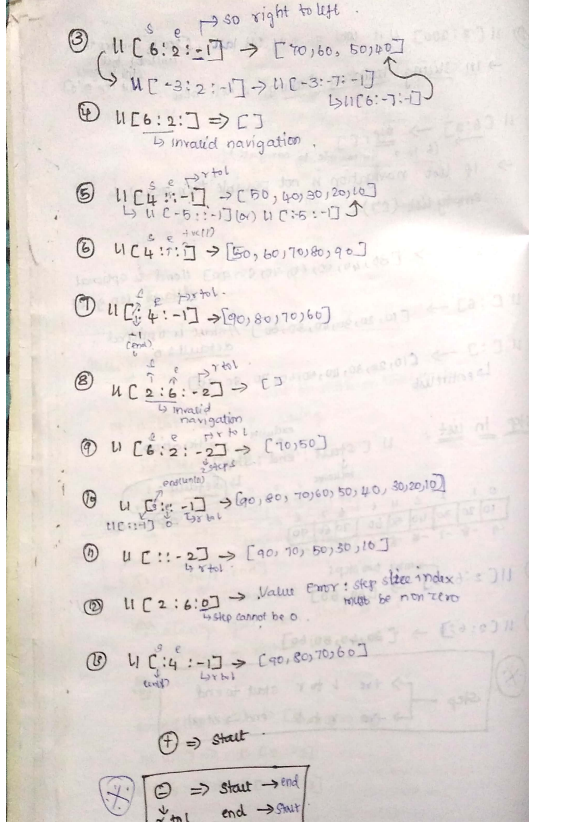 s e → so right to left.
③ ll [6:2:-1] → [70,60, 50,40]
ll [-3:2:-1] → ll [-3:-7:-1]
↳ ll[6:-7:-1]
④ ll[6:2:] ⇒ [ ]
↳ invalid navigation.
s e → r to l
⑤ ll[4::-1] → [50, 40, 30, 20, 10]
↳ ll [-5::-1] (or) ll [:-5:-1]
s e
⑥ ll [4::1] → [50, 60, 70, 80, 90]
s e → r to l.
⑦ ll [:4:-1] → [90, 80, 70, 60]
-1
(end)
s e → r to l.
⑧ ll [2:6:-2] → [ ]
↳ invalid
navigation
s e → r to l
⑨ ll [6:2:-2] → [70,50]
2 steps
⑩ ll [::-1] → [90, 80, 70, 60, 50, 40, 30, 20, 10]
ll[::-1] 0 ↳ r to l
⑪ ll [::-2] → [90, 70, 50, 30, 10]
↳ r to l
⑫ ll [2:6:0] → Value Error: step slice index
must be non zero
↳ step cannot be 0.
s e
⑬ ll [:4:-1] → [90, 80, 70, 60]
↳ r to l
⊕ ⇒ start.
⊖ ⇒ start → end
r to l end → start